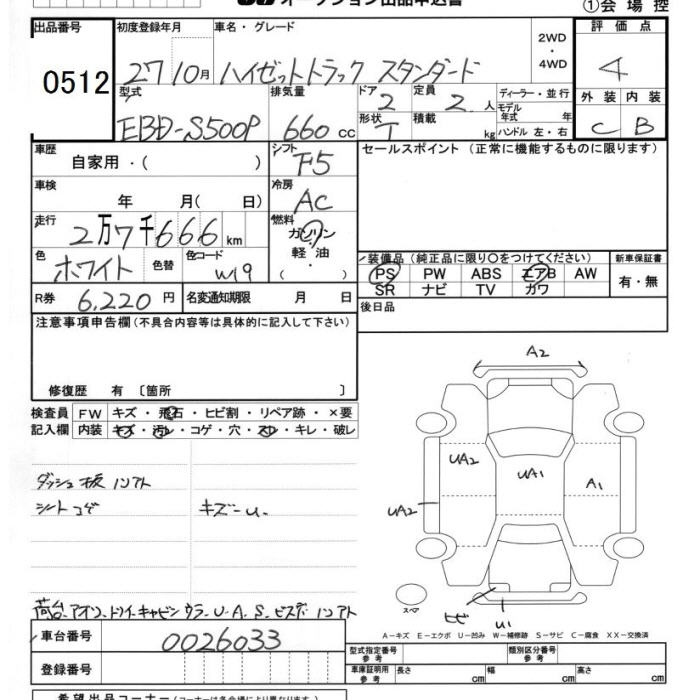 オークション出品申込書
①会 場 控
出品番号 初度登録年月 車名・グレード 評 価 点
0512 27 10月 ハイゼットトラック スタンダード 2WD・4WD 4
型式 排気量 ドア 2 定員 2 人 ディーラー・並行 外 装 内 装
EBD-S500P 660 cc 形状 T 積載 kg モデル年式 年 C B
ハンドル 左・右
車歴 シフト セールスポイント (正常に機能するものに限ります)
自家用 ・( ) F5
車検 冷房
年 月( 日) AC
走行 燃料
2万7千666 km ガソリン
色 色替 色コード 軽 油
ホワイト W19 ・( )
装備品 (純正品に限り○をつけてください) 新車保証書
PS PW ABS エアB AW 有・無
SR ナビ TV カワ
R券 6,220 円 名変通知期限 月 日 後日品
注意事項申告欄 (不具合内容等は具体的に記入して下さい)
修復歴 有 〔箇所 〕
検査員 FW キズ・飛石・ヒビ割・リペア跡・×要
記入欄 内装 キズ・汚レ・コゲ・穴・スレ・キレ・破レ
A2
UA2 UA1 A1
UA2
ダッシュ板
シートコゲ キズ-U.
スペア ヒビ U1
A-キズ E-エクボ U-凹み W-補修跡 S-サビ C-腐食 XX-交換済
車台番号 0026033
型式指定番号 参考 類別区分番号 参考
登録番号 車庫証明用 参考 長さ cm 幅 cm 高さ cm
希望出品コーナー (コーナーは各会場により異なります)